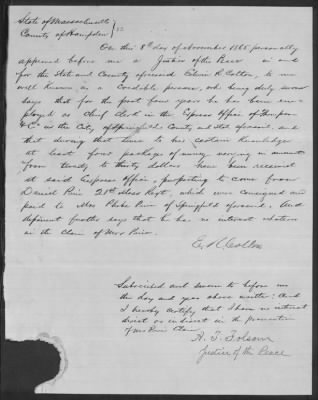 State of Massachusetts
County of Hampden } SS
On this 8th day of November 1865 personally
appeared before me a Justice of the Peace in and
for the State and County aforesaid Edwin R. Colton, to me
well known as a Credible person, who being duly sworn
says that for the past four years he has been em-
ployed as Chief Clerk in the Express Office of Thompson
& Co in the City of Springfield County and State aforesaid, and
that during that time to his certain knowledge
at least four packages of money, varying in amount
from twenty to thirty dollars have been received
at said Express office, purporting to come from
Daniel 21st Mass Regt, which were consigned and
paid to Mrs Phebe of Springfield aforesaid. And
deponent further says that he has no interest whatever
in the Claim of Mrs
E. R. Colton
Subscribed and sworn to before me
the day and year above written: And
I hereby certify that I have no interest
direct or indirect in the prosecution
of Mrs Claim
A. T. Folsom
Justice of the Peace